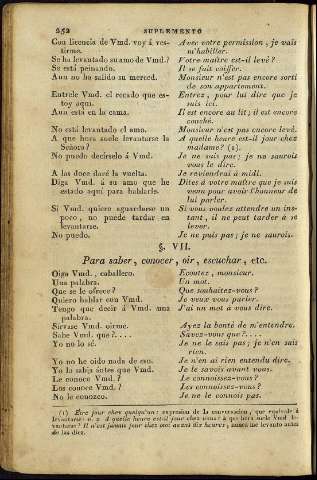 252 SUPLEMENTO
Con licencia de Vmd. voy á vestirme. Avec votre permission, je vais m'habiller.
Se ha levantado su amo de Vmd.? Votre maître est-il levé?
Se está peinando. Il se fait coiffer.
Aun no ha salido su merced. Monsieur n'est pas encore sorti de son appartement.
Entrele Vmd. el recado que estoy aqui. Entrez, pour lui dire que je suis ici.
Aun está en la cama. Il est encore au lit; il est encore couché.
No está levantado el amo. Monsieur n'est pas encore levé.
A que hora suele levantarse la Señora? A quelle heure est-il jour chez madame? (1).
No puedo decírselo á Vmd. Je ne sais pas; je ne saurois vous le dire.
A las doce daré la vuelta. Je reviendrai à midi.
Diga Vmd. á su amo que he estado aqui para hablarle. Dites à votre maître que je suis venu pour avoir l'honneur de lui parler.
Si Vmd. quiere aguardarse un poco, no puede tardar en levantarse. Si vous voulez attendre un instant, il ne peut tarder à se lever.
No puedo. Je ne puis pas; je ne saurois.
§. VII.
Para saber, conocer, oir, escuchar, etc.
Oiga Vmd., caballero. Ecoutez, monsieur.
Una palabra. Un mot.
Que se le ofrece? Que souhaitez-vous?
Quiero hablar con Vmd. Je veux vous parler.
Tengo que decir á Vmd. una palabra. J'ai un mot à vous dire.
Sirvase Vmd. oirme. Ayez la bonté de m'entendre.
Sabe Vmd. que?.... Savez-vous que?....
Yo no lo sé. Je ne le sais pas; je n'en sais rien.
Yo no he oido nada de eso. Je n'en ai rien entendu dire.
Yo la sabia ántes que Vmd. Je le savois avant vous.
Le conoce Vmd.? Le connoissez-vous?
Los conoce Vmd.? Les connoissez-vous?
No le conozco. Je ne le connois pas.
(1) Être jour chez quelqu'un: expresion de la conversacion, que equivale á
levantarse: v. g. A quelle heure est-il jour chez vous? á que hora suele Vmd. levantarse?
Il n'est jamais jour chez moi avant dix heures; nunca me levanto antes
de las diez.